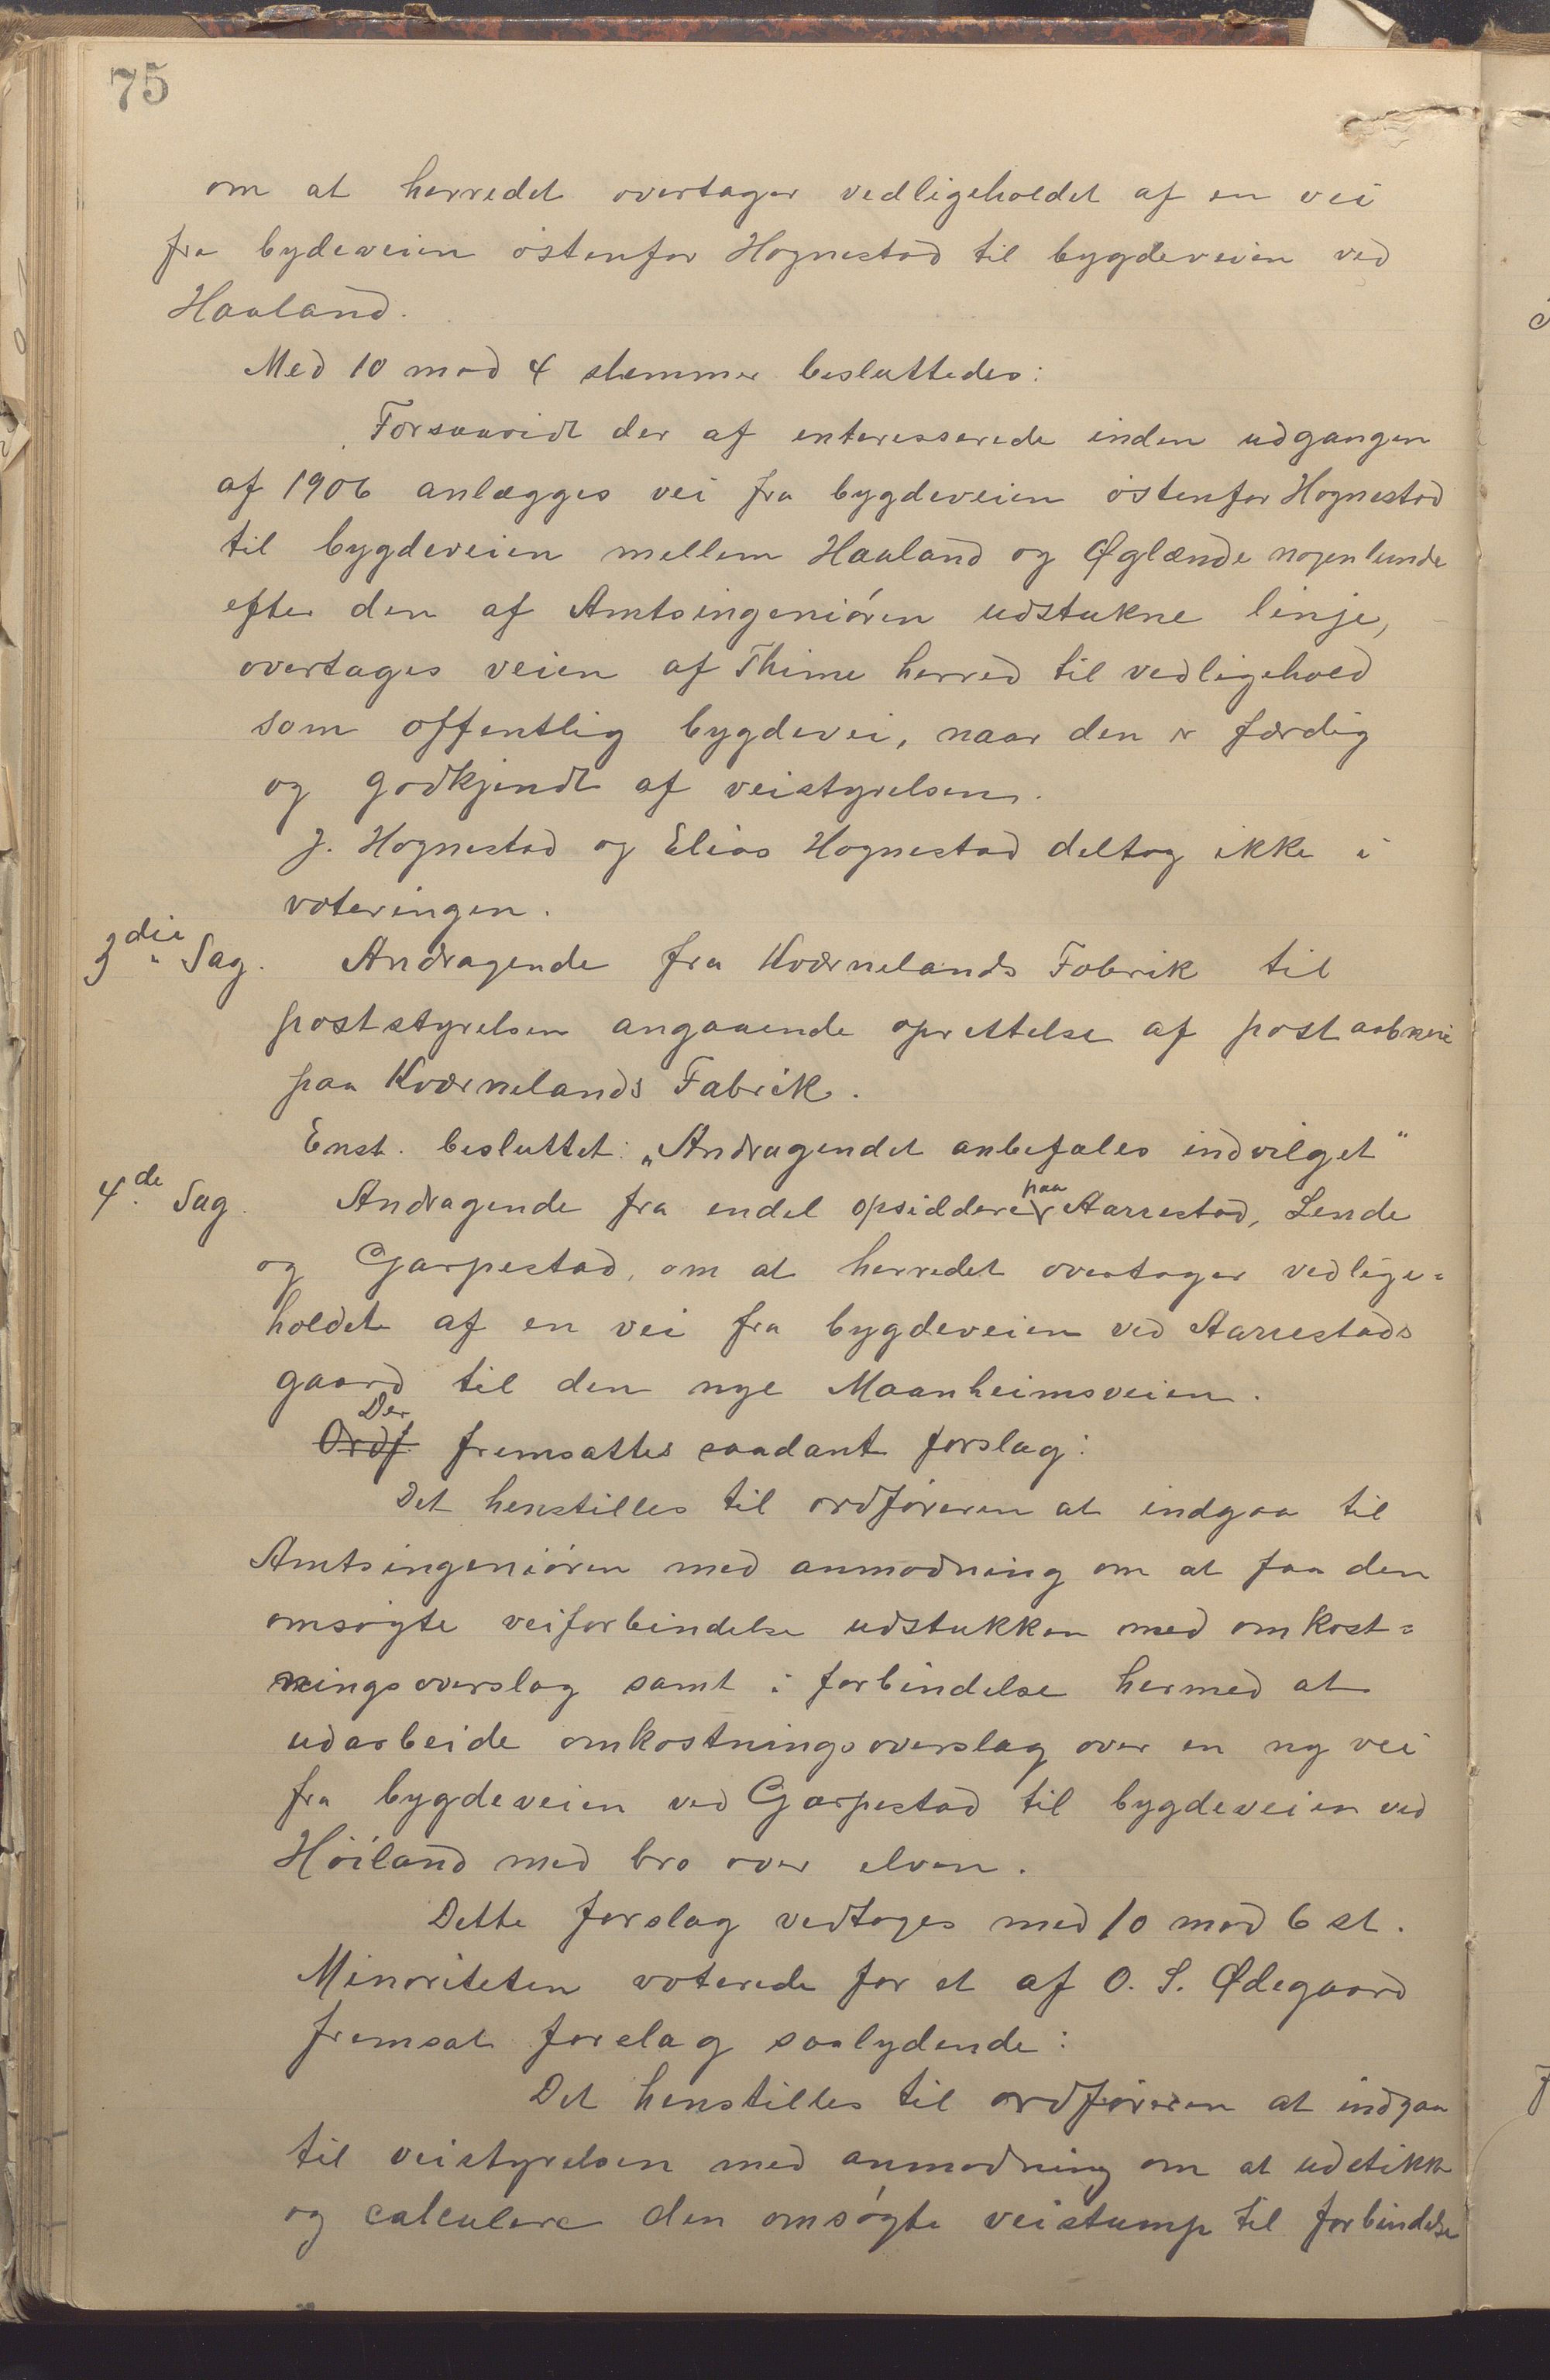 75
om at herredet overtager vedligeholdet af en vei
fra bydeveien østenfor Hognestad til bygdeveien ved
Haaland.
Med 10 mod 4 stemmer besluttedes:
Forsaavidt der af enteresserede inden udgangen
af 1906 anlægges vei fra bygdeveien østenfor Hognestad
til bygdeveien mellem Haaland og Øglænde nogenlunde
efter den af Amtsingeniøren udstukne linje,
overtages veien af Thime herred til vedligehold
som offentlig bygdevei, naar den er færdig
og godkjendt af veistyrelsen.
J. Hognestad og Elias Hognestad deltog ikke i
voteringen.
3die Sag. Andragende fra Kværnelands Fabrik til
poststyrelsen angaaende oprettelse af postaabneri
paa Kværnelands Fabrik.
Enst. besluttet: „Andragendet anbefales indvilget"
4.de Sag. Andragende fra endel opsiddere paa Aarrestad, Lende
og Garpestad, om at herredet overtager vedlige=
holdet af en vei fra bygdeveien ved Aarrestads
gaard til den nye Maanheimsveien.
Ordf. Der fremsattes saadant forslag:
Det henstilles til ordføreren at indgaa til
Amtsingeniøren med anmodning om at faa den
omsøgte veiforbindelse udstukken med omkost=
ningsoverslag samt i forbindelse hermed at
udarbeide omkostningsoverslag over en ny vei
fra bygdeveien ved Garpestad til bygdeveien ved
Høiland med bro over elven.
Dette forslag vedtoges med 10 mod 6 st.
Minoriteten voterede for et af O. S. Ødegaard
fremsat forslag saalydende:
Det henstilles til ordføreren at indgaa
til veistyrelsen med anmodning om at udstikke
og calculere den omsøgte veistump til forbindelse